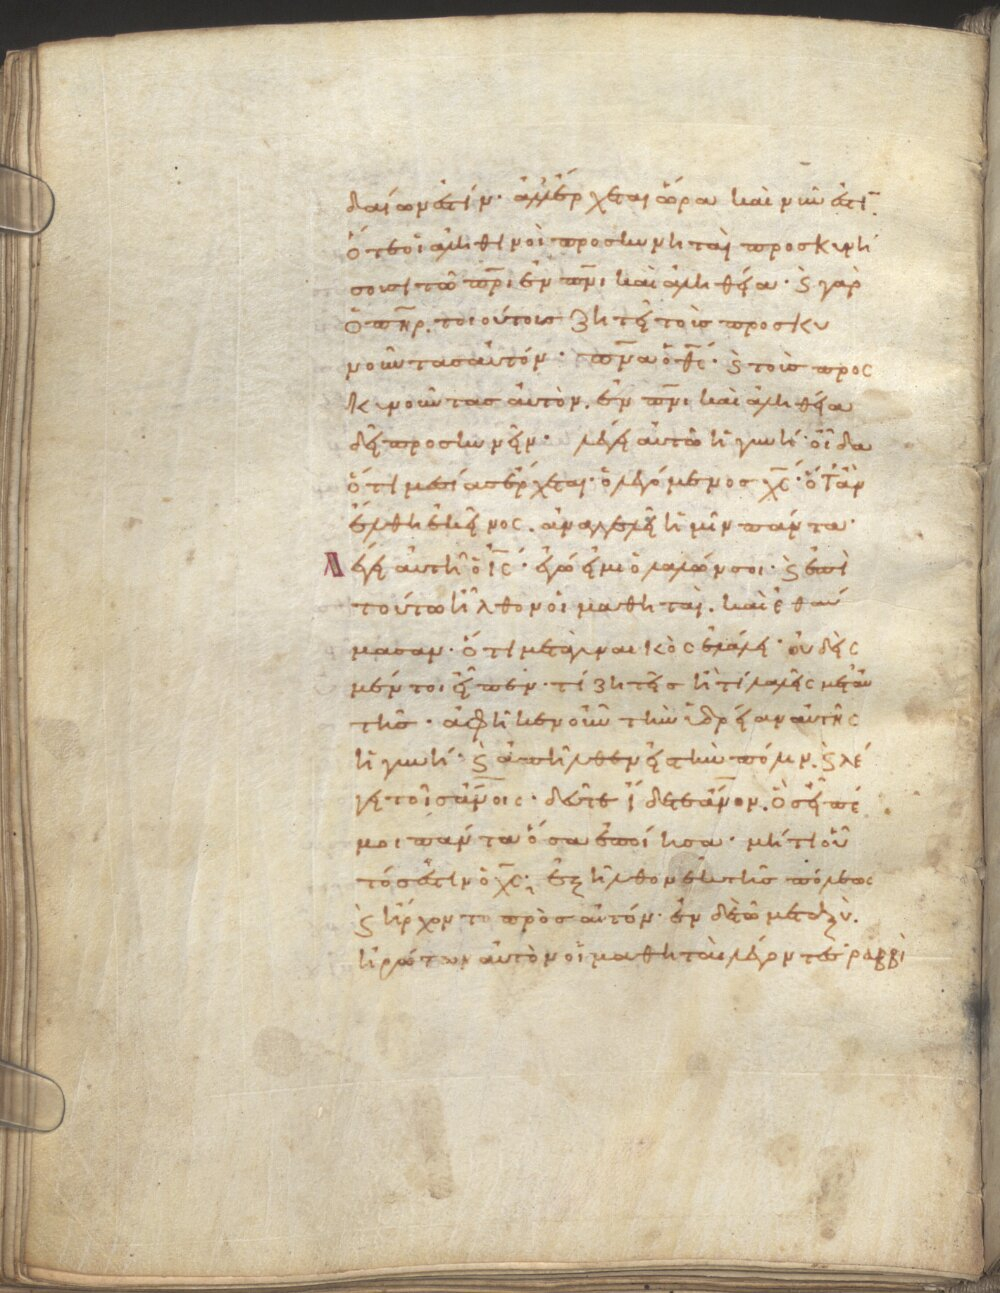 δαίων ἐστίν· ἀλλ' ἔρχεται ὥρα καὶ νῦν ἐστὶ̅·
ὅτε οἱ ἀληθινοὶ προσκυνηταὶ προσκυνή
σουσι τῶ π̅ρ̅ι ἐν π̅ν̅ι καὶ ἀληθεία· ϗ γὰρ
ὁ π̅η̅ρ̅, τοιούτους ζητεῖ τοὺς προσκυ
νοῦντας αὐτόν· π̅ν̅α ὁ θ̅ς̅· ϗ τοὺς προς
κυνοῦντας αὐτὸν, ἐν π̅ν̅ι καὶ ἀληθεία
δεῖ προσκυνεῖν· λέγει αὐτῶ ἡ γυνή· οἶδα
ὅτι μεσίας ἔρχεται· ὁ λεγόμενος χ̅ς̅· ὅταν
ἔλθη ἐκεῖνος, ἀναγγελεῖ ἡμῖν πάντα·
Λέγει αὐτῆ ὁ ι̅ς̅· ἐγώ εἰμι ὁ λαλῶν σοι· ϗ ἐπὶ
τούτω ἦλθον οἱ μαθηταὶ, καὶ ἐθαύ
μασαν· ὅτι μετὰ γυναικὸς ἐλάλει· οὐδεὶς
μέντοι εἶπεν· τί ζητεῖς ἢ τί λαλεῖς μετ' αὐ
τῆς· ἀφῆκεν οὖν τὴν ὑδρείαν αὐτῆς
ἡ γυνή· ϗ ἀπῆλθεν εἰς τὴν πόλιν, ϗ λέ
γει τοῖς α̅ν̅οις· δεῦτε ἴδετε α̅ν̅ον, ὃς εἶπέ
μοι πάντα ὅσα ἐποίησα· μήτι οὗ
τός ἐστιν ὁ χ̅ς̅; ἐξῆλθον ἐκ τῆς πόλεως
ϗ ἤρχοντο πρὸς αὐτόν· ἐν δὲ τῶ μεταξὺ,
ἠρώτων αὐτὸν οἱ μαθηταὶ λέγοντες· ραββὶ